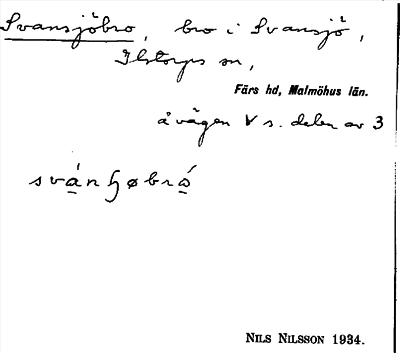 Svansjöbro, bro i Svansjö,
Ilstorps sn,
Färs hd, Malmöhus län.
å vägen V s. delen av 3
svánɧøbrώ
NILS NILSSON 1934.